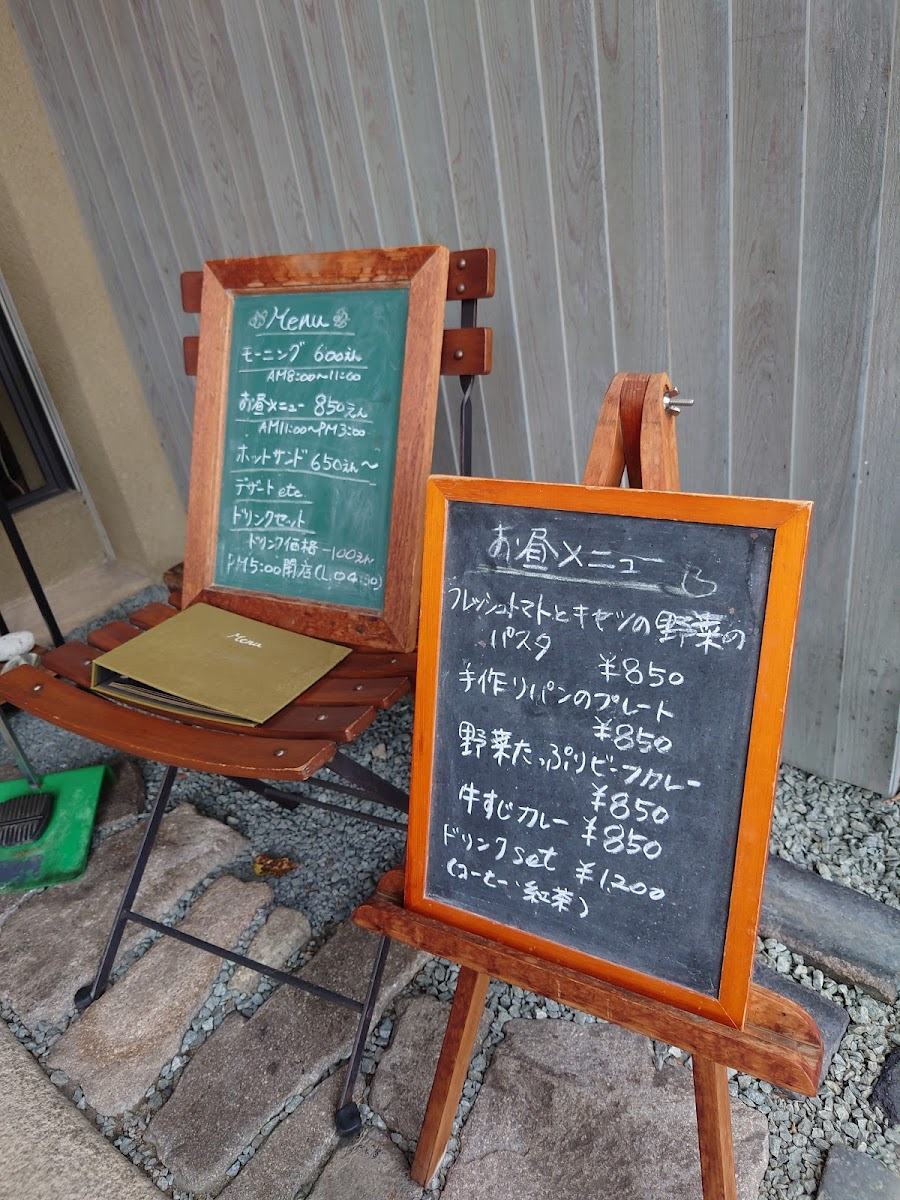 Menu
モーニング 600えん
AM8:00〜11:00
お昼メニュー 850えん
AM11:00〜PM3:00
ホットサンド 650えん〜
デザートetc
ドリンクセット
ドリンク価格-100えん
PM5:00閉店(L.O4:30)
Menu
お昼メニュー
フレッシュトマトとキャベツの野菜の
パスタ ¥850
手作りパンのプレート
¥850
野菜たっぷりビーフカレー
¥850
牛すじカレー ¥850
ドリンクset ¥1,200
(コーヒー、紅茶)